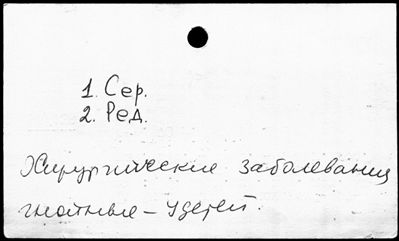 1. Сер.
2. Ред.
Хирургические заболевания
гнойные - у детей.